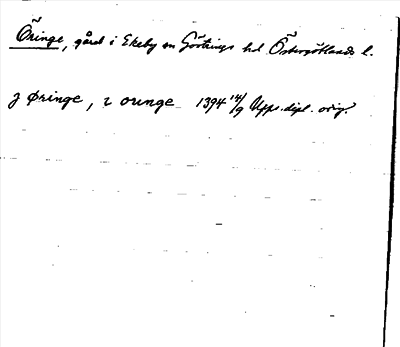 Öringe, gård i Ekeby sn Göstrings hd Östergötlands l.
j øringe, 2 ounge 1394 14/9 Upps. dipl. orig.